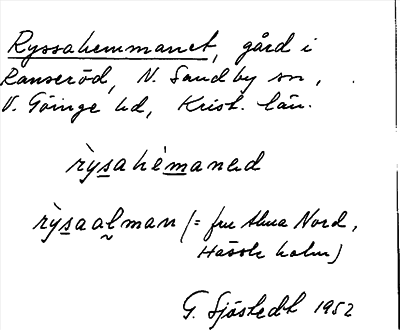 Ryssahemmanet, gård i
Ranseröd, N. Sandby sn,
V. Göinge hd, Krist. län.
rỳsahémaned
rỳsaalman (= fru Alma Nord,
Hässleholm)
G. Sjöstedt 1952